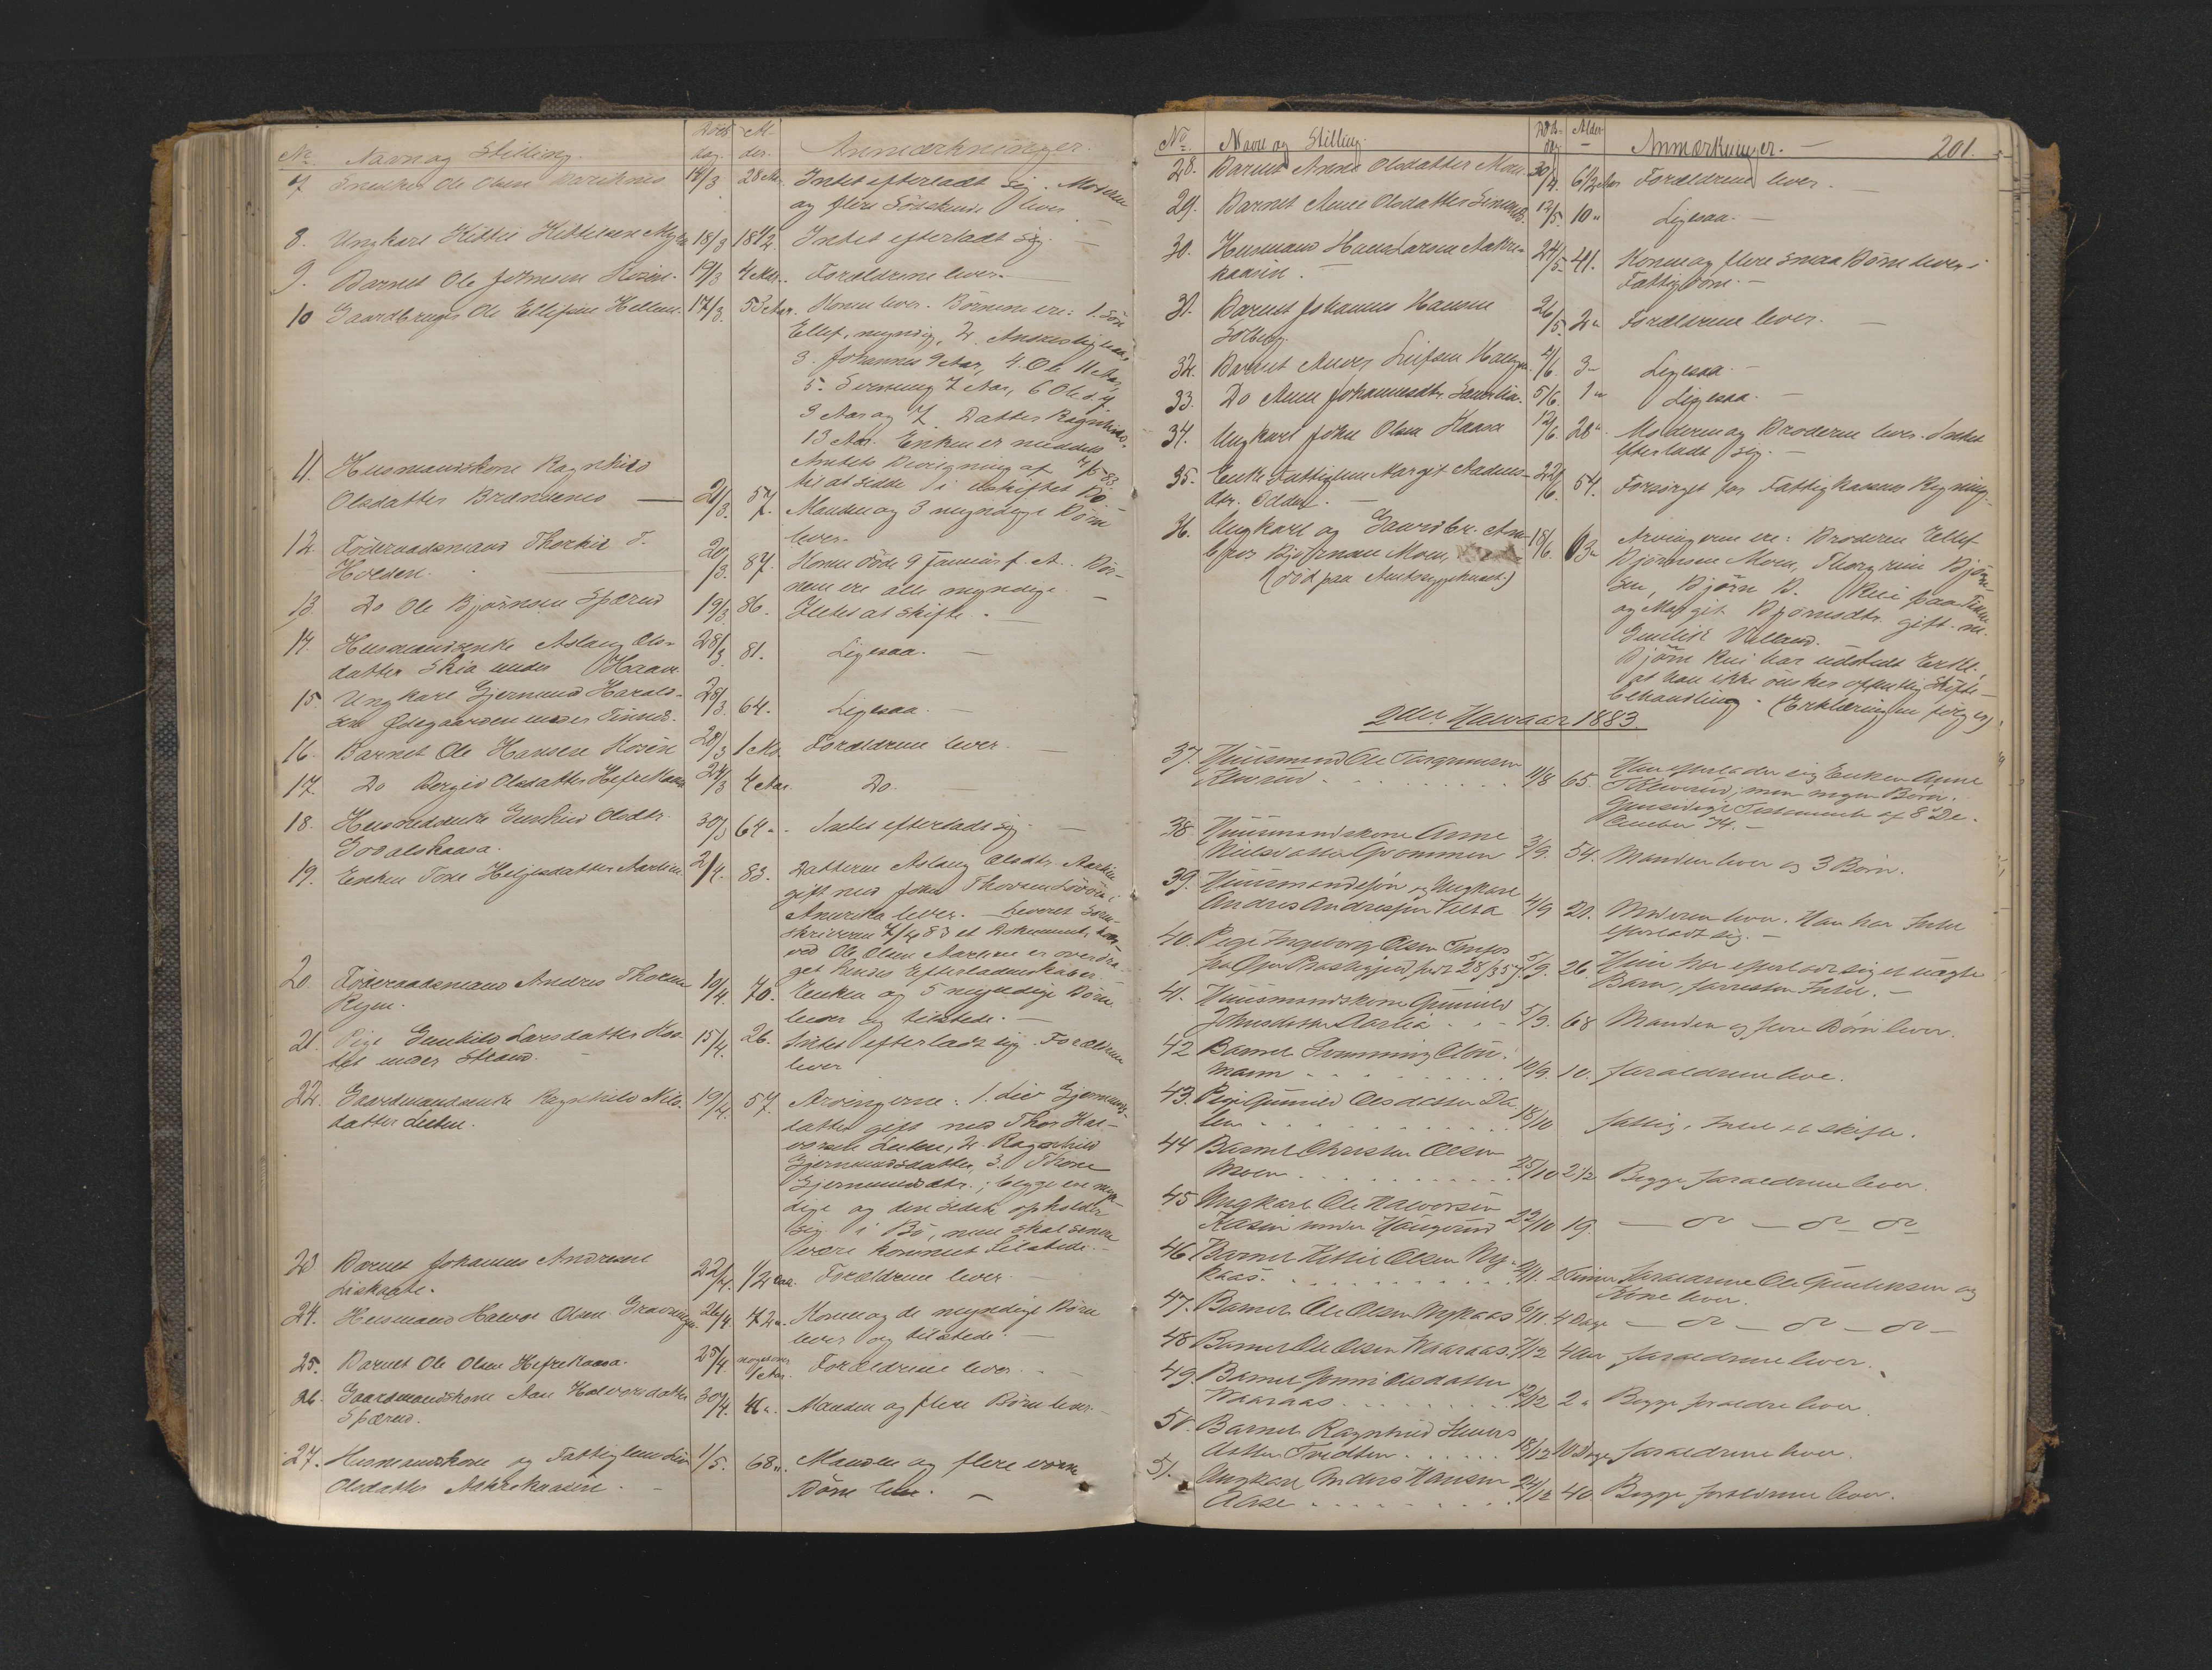 No. Navn og Stilling. Döds dag. Al- der. Anmærkninger.
7 Snedker Ole Olsen 14/3 28 Aar Intet efterladt sig. Moderen
og flere Södskende lever. —
8. Ungkarl Kittil Kittelsen 18/3 18 1/2 Intet efterladt sig. —
9. Barnet Ole Johnsen 19/3 4 Aar. Forældrene lever. —
10 Gaardbruger Ole Ellefsen Hellem. 17/3. 53 Aar. Konen lever. Börnene ere: 1. Sön
Ellef, myndig, 2.
3. Johannes 9 Aar, 4. Ole 11 Aar,
5. 7 Aar, 6 Ole d. y.
3 Aar og 7. Datter Ragnhild
13 Aar. Enken er meddelt
Amtets Bevilgning af 7/5 83.
til at sidde i uskiftet Bo
11. Husmandskone Ragnhild
Olsdatter — 21/3. 57. Manden og 3 myndige Börn
lever. —
12. Föderaadsmand Thorkil T.
Holden. — 20/3. 87. Konen döde 9 Januar f. A. Bör-
nene ere alle myndige. —
13. Do Ole Björnsen Spærud 19/3 86. Intet at skifte. —
14. Husmandsenke Aslaug Ols-
datter Skia under Haave 28/3 81. Ligesaa. —
15. Ungkarl Gjermund Harald-
sen Ödegaarden under Tinnes. 28/3. 64. Ligesaa. —
16. Barnet Ole Hansen 28/3 1 Md. Forældrene lever. —
17. Do Bergit Olsdatter Hefrekaasa 24/3 4 Aar. Do —
18. Husmandsenke Gunhild Olsdtr.
30/3 64 „ Intet efterladt sig. —
19. Enken Tone Helgesdatter Aarlien 2/4. 83. Datteren Aslaug Olsdtr. Aarlien
gift med John Thorsen i
Amerika lever. — Leveret Soren-
skriveren 7/4 83 et Dokument, hvor-
ved Ole Olsen Aarlien er overdra-
get hendes Efterladenskaber.
20. Föderaadsmand Andres Thorsen 10/4. 70. Enken og 5 myndige Börn
lever og tilstede. —
21. Pige Gunhild Larsdatter
under Strand. — 15/4. 26. Intet efterladt sig. Forældrene
lever
22. Gaardmandsenke Ragnhild Nils-
datter Lien. 19/4. 57. Arvingerne: 1. Liv Gjermunds-
datter gift med Thor Hal-
vorsen, 2. Ragnhild
Gjermundsdatter, 3. Thone
Gjermundsdtr.; begge ere myn-
dige og den sidste opholder
sig i Bö, men skal senere
være kommet tilstede. —
23. Barnet Johannes Andresen
22/4. 1/2 Aar. Forældrene lever. —
24. Husmand Halvor Olsen 26/4. 72 „ Konen og de myndige Börn
lever og tilstede. —
25. Barnet Ole Olsen Hefrekaasa. 25/4 noget over 1 Aar. Forældrene lever. —
26. Gaardmandskone Aase Halvorsdatter
Spærud. 30/4. 46 „ Manden og flere Börn lever.
27. Husmandskone og Fattiglem Liv 1/5. 68 „ Manden og flere voxne
Olsdatter Aakrekaasin. — Börn lever. —
No. Navn og Stilling. Döds- dag. Alder — Anmærkninger. — 201.
28. Barnet Anne Olsdatter Moen 30/4. 6 1/2 Aar Forældrene lever. —
29. Barnet Anne Olsdatter 12/5. 10 „ Ligesaa. —
30. Husmand Hans Larsen Aakre- 24/5. 41. Konen og flere smaa Börn lever i
kaasin. — Fattigdom. —
31. Barnet Johannes Hansen 26/5. 2 „ Forældrene lever. —
Solberg.
32. Barnet Anders Leifsen 4/6. 3 „ Ligesaa. —
33. Do Anne Johannesdtr. 5/6. 1 „ Ligesaa. —
34. Ungkarl John Olsen Kaasa 12/6. 28 „ Moderen og Broderen lever. Intet
efterladt sig. —
35. Enke Fattiglem Margit Aadne- 22/6. 54. Forsörget for Fattigkassens Regning.
dtr. Odden. —
36. Ungkarl og Gaardbr. Am-
björn Björnsen Moen, 18/6. 63 „ Arvingerne ere: Broderen Ellef
(död paa Amtssygehuset.) Björnsen Moen, Thorgrim Björn-
sen, Björn B. Rui paa Tinne
og Margit Björnsdtr. gift m.
Gunlik Velland.
Björn Rui har udstedt Erkl.
at han ikke önsker offentlig Skifte-
behandling. (Erklæringen fölger)
2det Halvaar 1883.
37. Huusmand Ole Torgrimsen
11/8 65. Han efterlader sig Enken Anne
men ingen Börn.
Gjensidigt Testamente af 8 De-
cember 74. —
38 Huusmandskone Anne
Nielsdatter Grommen 3/9. 54. Manden lever og 3 Börn.
39. Huusmandssön og Ungkarl
Andres Andresen 4/9 21. Moderen lever. Han har Intet
efterladt sig. —
40. Pige Ingeborg Olsen
födt 28/3 57. 5/9. 26. Hun har efterladt sig et uægte
Barn, forresten Intet. —
41. Huusmandskone Gunild
Johnsdatter Aarlia . . . 5/9. 68 Manden og flere Börn lever.
42 Barnet Olsen
Moen . . . 10/9. 10. Forældrene leve.
43. Pige Gunild Olsdatter Da-
len . . . 18/10 fattig, Intet at skifte.
44 Barnet Christen Olsen
Moen . . . 25/10 2 1/2 Begge Forældrene lever.
45 Ungkarl Ole Halvorsen
Kaasen under Haugerud 29/10 19. — do — do — do —
46. Barnet Kittil Olsen My-
kaas. . . . 2/11. 2 Timer Forældrene Ole Guttormsen og
Kone lever.
47. Barnet Ole Olsen Mykaas 6/11. 4 Dage — do — do — do —
48 Barnet Ole Olsen Waaraas. 7/12 4 Aar Forældrene lever.
49. Barnet Gunni Olsdatter
Waaraas . . . 12/12 2 „ Begge Forældre lever.
50. Barnet Ragnhild
datter . . . 18/12 10 Dage Forældrene lever.
51. Ungkarl Anders Hansen 24/12 40 Begge Forældrene lever.
Aase . . .